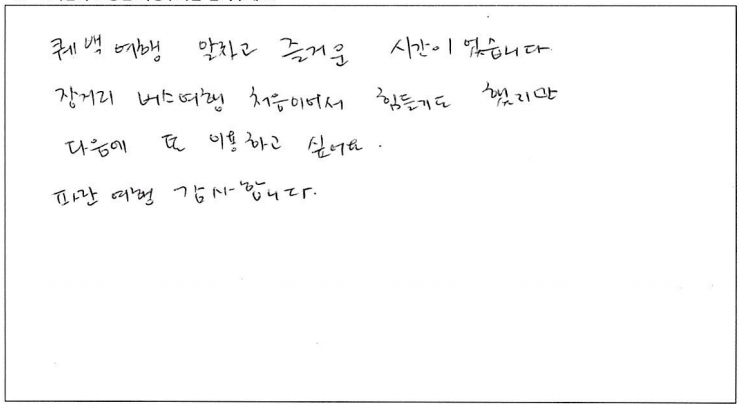 퀘백 여행 알차고 즐거운 시간이 었습니다
장거리 버스여행 처음이어서 힘들기도 했지만
다음에 또 이용하고 싶어요.
파란 여행 감사합니다.